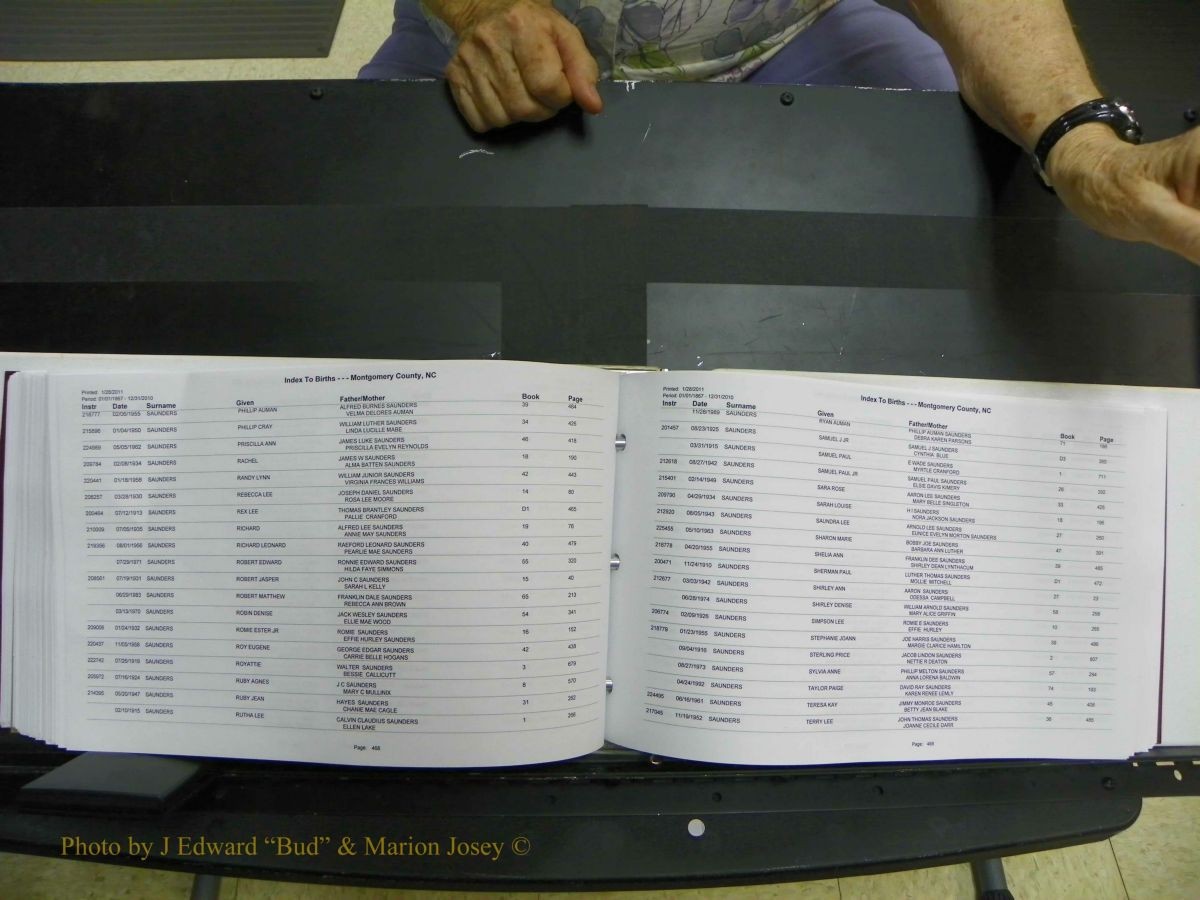 Printed: 1/28/2011
Period: 01/01/1867 - 12/31/2010
Index To Births - - - Montgomery County, NC
Instr Date Surname Given Father/Mother Book Page
218777 02/06/1955 SAUNDERS PHILLIP AUMAN ALFRED BURNES SAUNDERS 39 484
VELMA DELORES AUMAN
215896 01/04/1950 SAUNDERS PHILLIP CRAY WILLIAM LUTHER SAUNDERS 34 426
LINDA LUCILLE MABE
224989 05/05/1962 SAUNDERS PRISCILLA ANN JAMES LUKE SAUNDERS 46 418
PRISCILLA EVELYN REYNOLDS
209784 02/08/1934 SAUNDERS RACHEL JAMES W SAUNDERS 18 190
ALMA BATTEN SAUNDERS
220441 01/18/1958 SAUNDERS RANDY LYNN WILLIAM JUNIOR SAUNDERS 42 443
VIRGINIA FRANCES WILLIAMS
208257 03/28/1930 SAUNDERS REBECCA LEE JOSEPH DANIEL SAUNDERS 14 80
ROSA LEE MOORE
200464 07/12/1913 SAUNDERS REX LEE THOMAS BRANTLEY SAUNDERS D1 465
PALLIE CRANFORD
210009 07/05/1935 SAUNDERS RICHARD ALFRED LEE SAUNDERS 19 76
ANNIE MAY SAUNDERS
219356 08/01/1956 SAUNDERS RICHARD LEONARD RAEFORD LEONARD SAUNDERS 40 479
PEARLIE MAE SAUNDERS
07/29/1971 SAUNDERS ROBERT EDWARD RONNIE EDWARD SAUNDERS 55 320
HILDA FAYE SIMMONS
208561 07/19/1931 SAUNDERS ROBERT JASPER JOHN C SAUNDERS 15 40
SARAH L KELLY
06/29/1983 SAUNDERS ROBERT MATTHEW FRANKLIN DALE SAUNDERS 65 213
REBECCA ANN BROWN
03/13/1970 SAUNDERS ROBIN DENISE JACK WESLEY SAUNDERS 54 341
ELLIE MAE WOOD
209006 01/24/1932 SAUNDERS ROMIE ESTER JR ROMIE SAUNDERS 16 152
EFFIE HURLEY SAUNDERS
220437 11/05/1958 SAUNDERS ROY EUGENE GEORGE EDGAR SAUNDERS 42 438
CARRIE BELLE HOGANS
222742 07/25/1919 SAUNDERS ROYATTIE WALTER SAUNDERS 3 679
BESSIE CALLICUTT
205972 07/16/1924 SAUNDERS RUBY AGNES J C SAUNDERS 8 570
MARY C MULLINIX
214395 05/20/1947 SAUNDERS RUBY JEAN HAYES SAUNDERS 31 262
CHANIE MAE CAGLE
02/10/1915 SAUNDERS RUTHA LEE CALVIN CLAUDIUS SAUNDERS 1 266
ELLEN LAKE
Page: 468
Printed: 1/28/2011
Period: 01/01/1867 - 12/31/2010
Index To Births - - - Montgomery County, NC
Instr Date Surname Given Father/Mother Book Page
11/28/1989 SAUNDERS RYAN AUMAN PHILLIP AUMAN SAUNDERS 71
DEBRA KAREN PARSONS
201457 08/23/1925 SAUNDERS SAMUEL J JR SAMUEL J SAUNDERS D3
CYNTHIA BLUE
03/31/1915 SAUNDERS SAMUEL PAUL E WADE SAUNDERS 1 711
MYRTLE CRANFORD
212618 08/27/1942 SAUNDERS SAMUEL PAUL JR SAMUEL PAUL SAUNDERS 26 392
ELSIE DAVIS KIMERY
215401 02/14/1949 SAUNDERS SARA ROSE AARON LEE SAUNDERS 33 426
MARY BELLE SINGLETON
209790 04/29/1934 SAUNDERS SARAH LOUISE H I SAUNDERS 18 196
NORA JACKSON SAUNDERS
212920 08/05/1943 SAUNDERS SAUNDRA LEE ARNOLD LEE SAUNDERS 27 260
EUNICE EVELYN MORTON SAUNDERS
225455 05/10/1963 SAUNDERS SHARON MARIE BOBBY JOE SAUNDERS 47 391
BARBARA ANN LUTHER
218778 04/20/1955 SAUNDERS SHELIA ANN FRANKLIN DEE SAUNDERS 39 485
SHIRLEY DEAN LYNTHACUM
200471 11/24/1910 SAUNDERS SHERMAN PAUL LUTHER THOMAS SAUNDERS D1 472
MOLLIE MITCHELL
212677 03/03/1942 SAUNDERS SHIRLEY ANN AARON SAUNDERS 27 23
ODESSA CAMPBELL
06/28/1974 SAUNDERS SHIRLEY DENISE WILLIAM ARNOLD SAUNDERS 58 259
MARY ALICE GRIFFIN
206774 02/09/1926 SAUNDERS SIMPSON LEE ROMIE E SAUNDERS 10
EFFIE HURLEY
218779 01/23/1955 SAUNDERS STEPHANIE JOANN JOE HARRIS SAUNDERS 39 486
MARGIE CLARICE HAMILTON
09/04/1916 SAUNDERS STERLING PRICE JACOB LINDON SAUNDERS 2 807
NETTIE R DEATON
08/27/1973 SAUNDERS SYLVIA ANNE PHILLIP MELTON SAUNDERS 57 294
ANNA LORENA BALDWIN
04/24/1992 SAUNDERS TAYLOR PAIGE DAVID RAY SAUNDERS 74 183
KAREN RENEE LEMLY
224495 06/16/1961 SAUNDERS TERESA KAY JIMMY MONROE SAUNDERS 45 436
BETTY JEAN BLAKE
217045 11/19/1952 SAUNDERS TERRY LEE JOHN THOMAS SAUNDERS 36 485
JOANNE CECILE DARR
Page: 469
Photo by J Edward “Bud” & Marion Josey ©